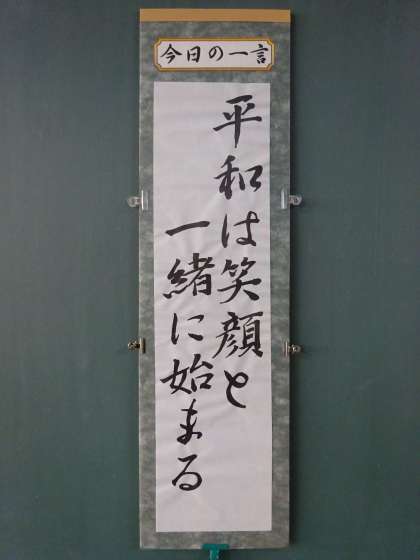 今日の一言
平和は笑顔と
一緒に始まる